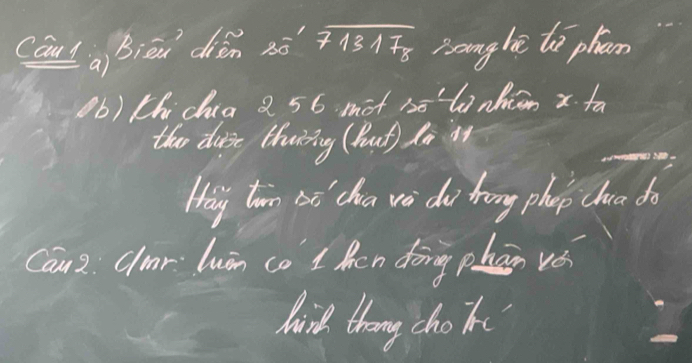 Câu 1 a) Biểu diễn số 71317₈ sang hệ tứ phân
b) Khi chia 256 một số tự nhiên x ta
thu được thương (hụt) là 11
Hãy tìm số chia và dư trong phép chia đó
Câu 2: Cmr: luôn có 1 hcn đồng phân với
hình thang cho trc